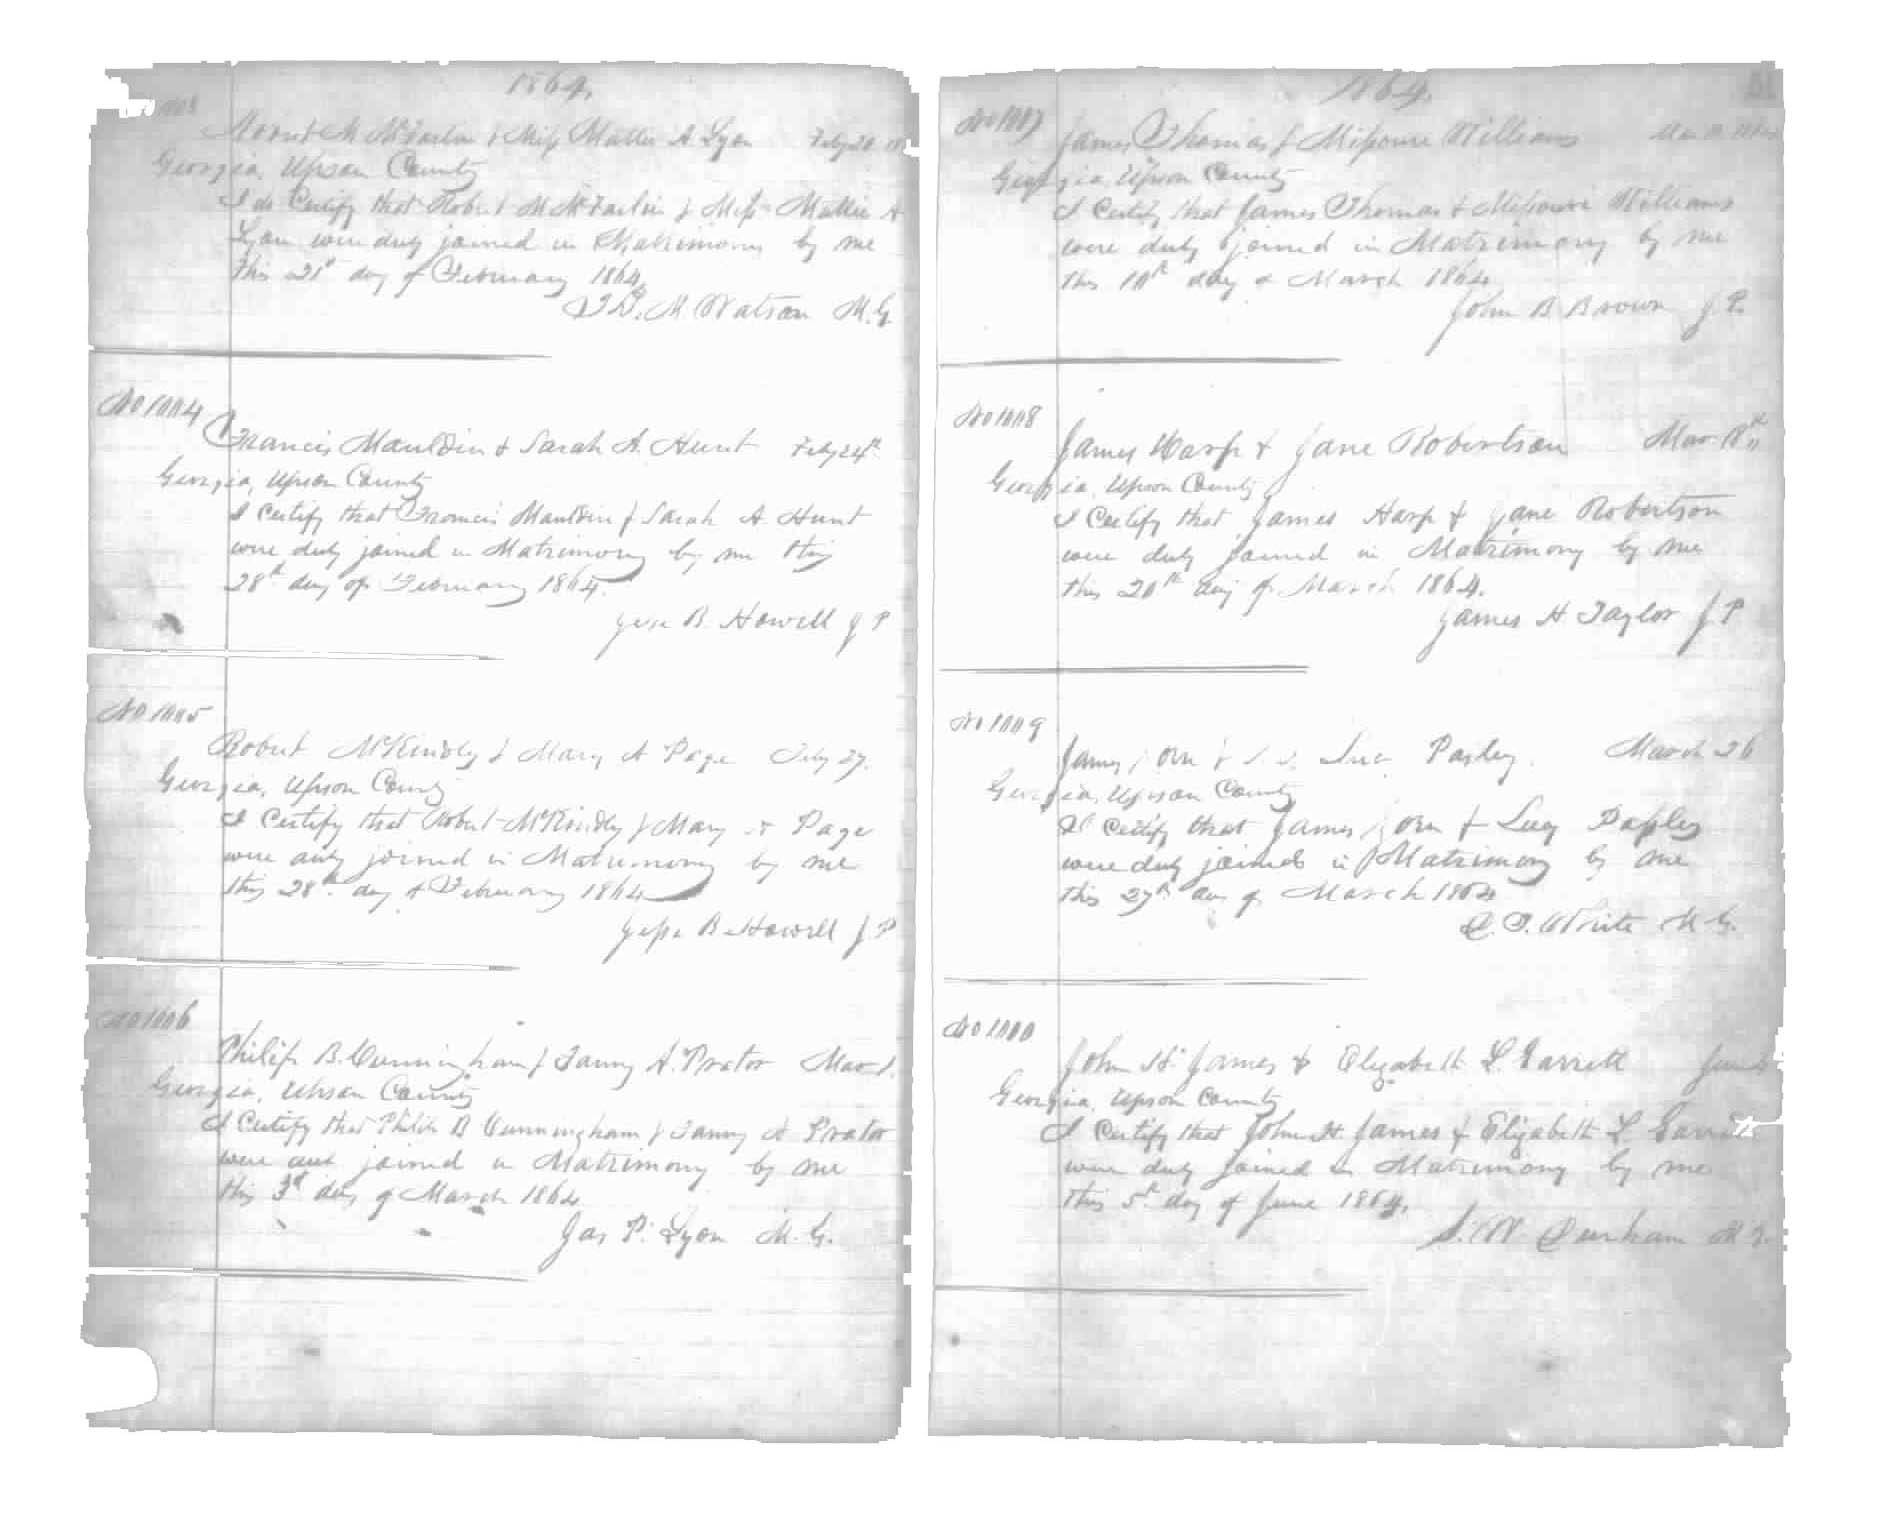 1864.
Robert M McFarlin & Miss Mattie A Lyon Feby 20
Georgia, Upson County
I do Certify that Robert M McFarlin & Miss Mattie A
Lyon were duly joined in Matrimony by me
this 21st day of February 1864
M Watson M. G.
No 1004
Francis Mauldin & Sarah A. Hunt Feby 24th
Georgia, Upson County
I Certify that Francis Mauldin & Sarah A. Hunt
were duly joined in Matrimony by me this
28th day of February 1864.
Jesse B. Howell J P
No 1005
Robert McKindly & Mary A Page Feby 27.
Georgia, Upson County
I Certify that Robert McKindly & Mary A Page
were duly joined in Matrimony by me
this 28th day of February 1864
Jesse B Howell J P
No 1006
Philip B. Cunningham & Fanny A. Prator Mar 1.
Georgia, Upson County
I Certify that Philip B Cunningham & Fanny A Prator
were duly joined in Matrimony by me
this 3rd day of March 1864
Jas P. Lyon M. G.
1864.
No 1007
James Thomas & Missourie Williams
Georgia, Upson County
I Certify that James Thomas & Missourie Williams
were duly joined in Matrimony by me
this 10th day of March 1864
John B Brown J. P.
No 1008
James Harp & Jane Robertson Mar. 18th
Georgia, Upson County
I Certify that James Harp & Jane Robertson
were duly joined in Matrimony by me
this 20th day of March 1864.
James H Taylor J P
No 1009
James & Pasley. March 26
Georgia, Upson County
I Certify that James & Lucy Passley
were duly joined in Matrimony by me
this 27th day of March 1864
White M. G.
John H. James & Elizabeth L. Garrett June
Georgia, Upson County
I Certify that John H. James & Elizabeth L. Garrett
were duly joined in Matrimony by me
this 5th day of June 1864.
S. W. Durham M. G.